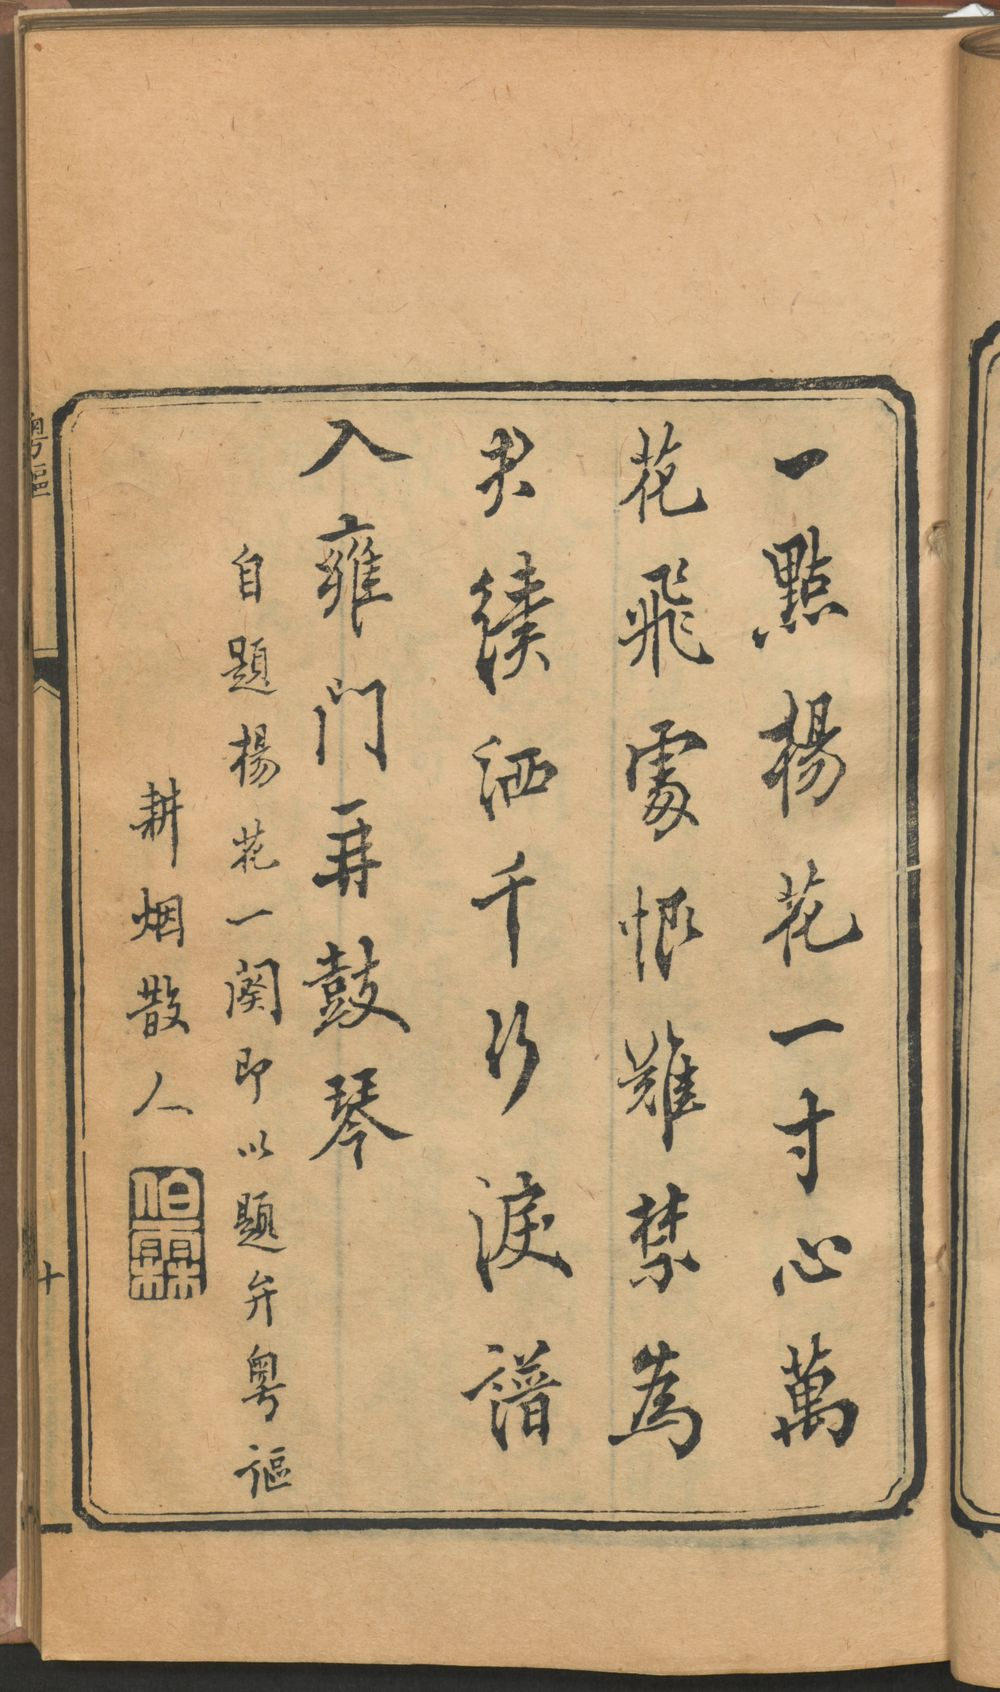 一點楊花一寸心萬
花飛處恨難禁為
君續洒千行淚譜
入雍門再鼓琴
自題楊花一闋即以題弁粵謳
耕烟散人
伯霖
粵謳
十